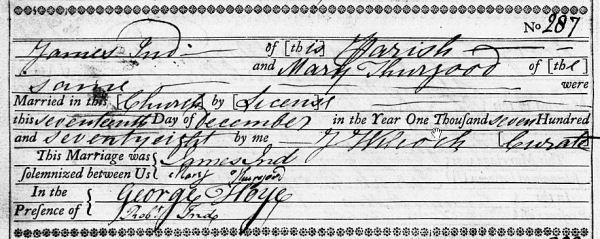 No 287
James Ind of [this] Parish
and Mary Thurgood of [the
same were
Married in this [Church] by [License]
this seventeenth Day of December in the Year One Thousand seven Hundred
and seventyeight by me J Wilcock [Curate
This Marriage was { James Ind
solemnized between Us { Mary Thurgood
In the { George Hoye
Presence of { Robt Ind